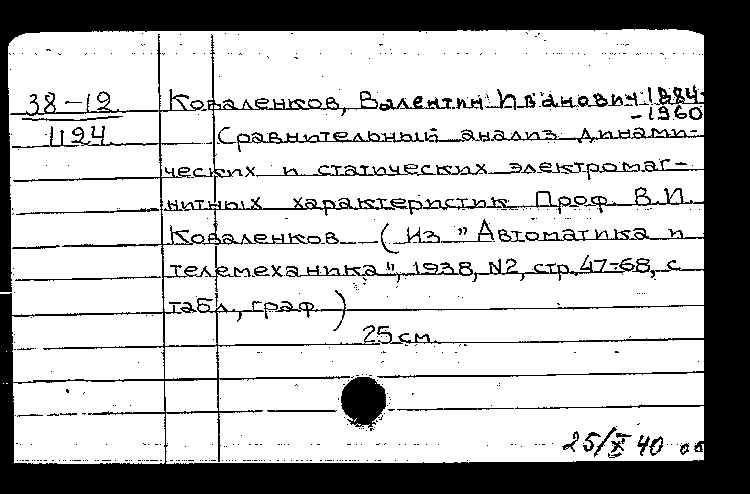 38-12
1194
Коваленков, Валентин Иванович 1884-
-1960
Сравнительный анализ динами-
ческих и статических электромаг-
нитных характеристик Проф. В.И.
Коваленков (Из "Автоматика и
телемеханика", 1938, N2, стр. 47-68, с
табл., граф.)
25 см.
25/X 40